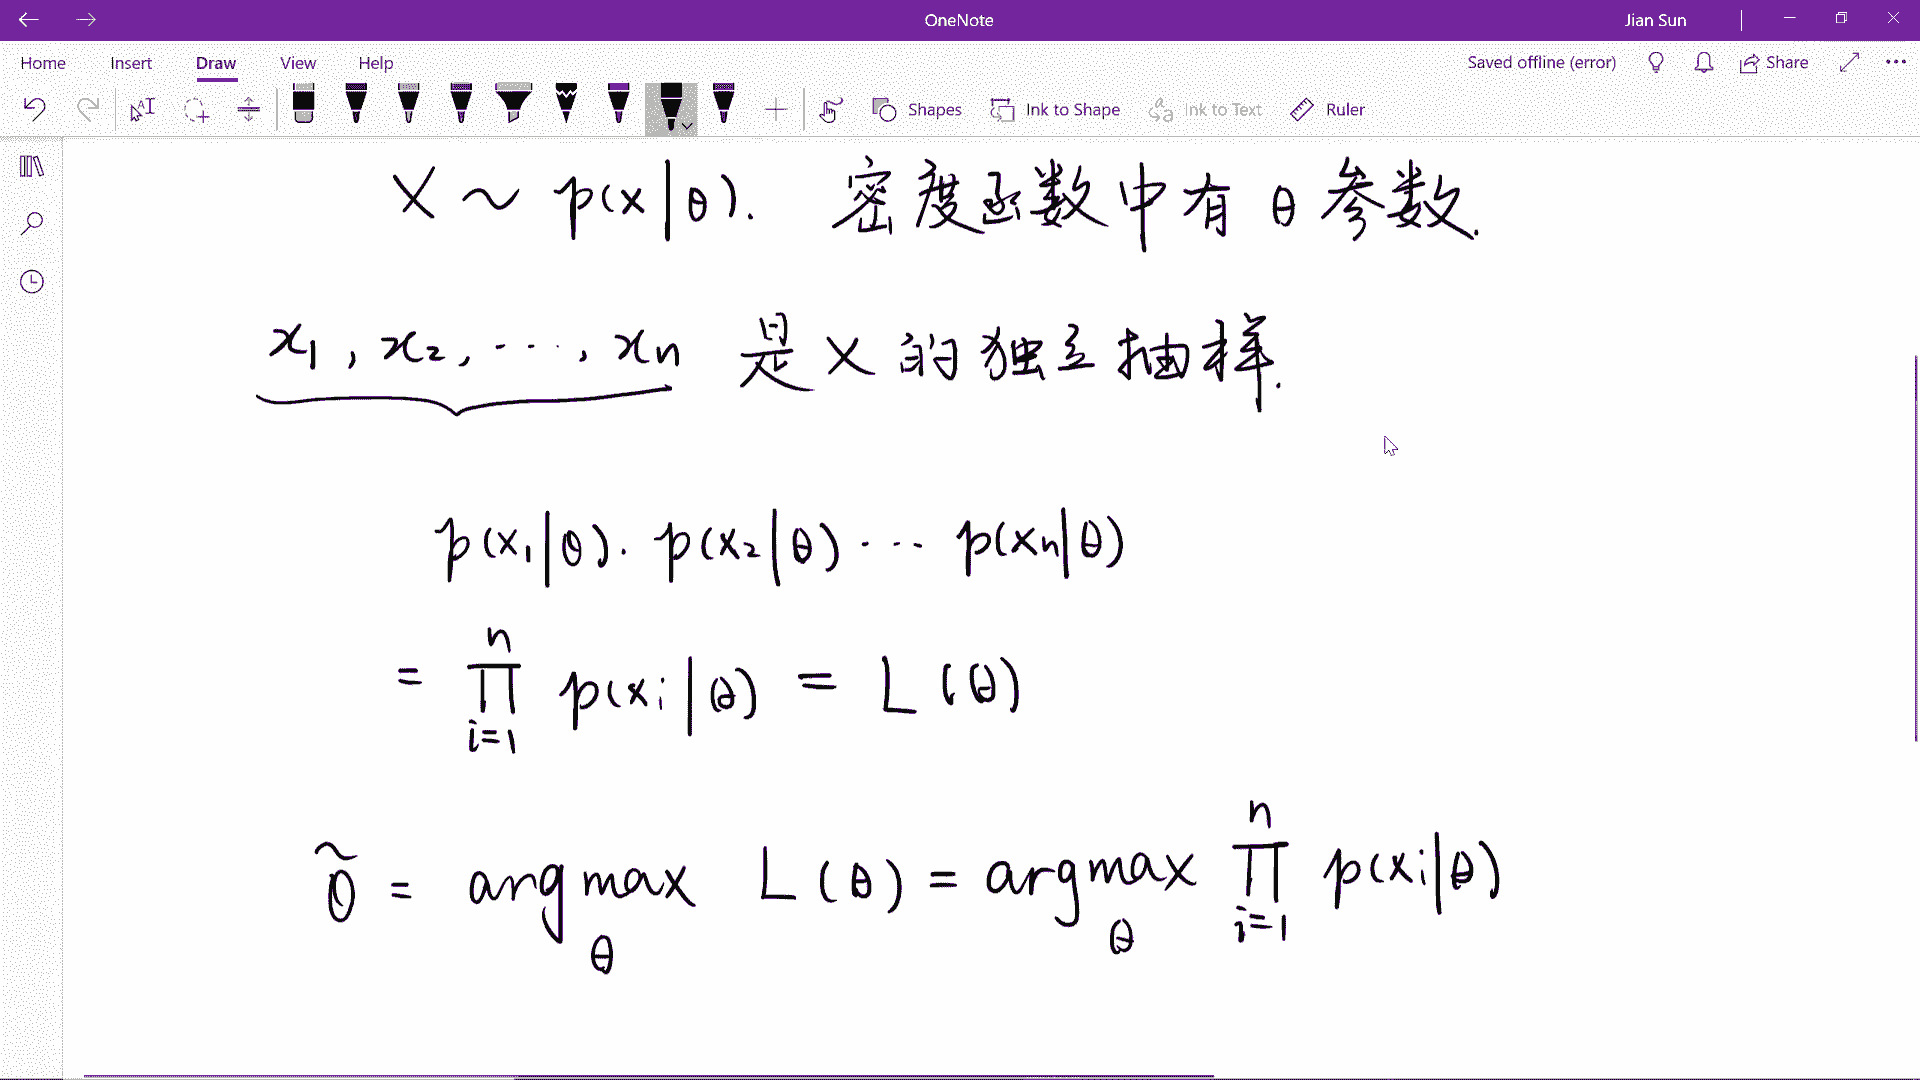 OneNote
Jian Sun
Home Insert Draw View Help
Saved offline (error) Share
Shapes Ink to Shape Ink to Text Ruler
X ~ p(x|θ). 密度函数中有 θ 参数.
x₁, x₂, ⋯, xₙ 是 X 的独立抽样.
p(x₁|θ). p(x₂|θ) ⋯ p(xₙ|θ)
= ∏ⁿᵢ₌₁ p(xᵢ|θ) = L(θ)
θ̃ = argmax_θ L(θ) = argmax_θ ∏ⁿᵢ₌₁ p(xᵢ|θ)